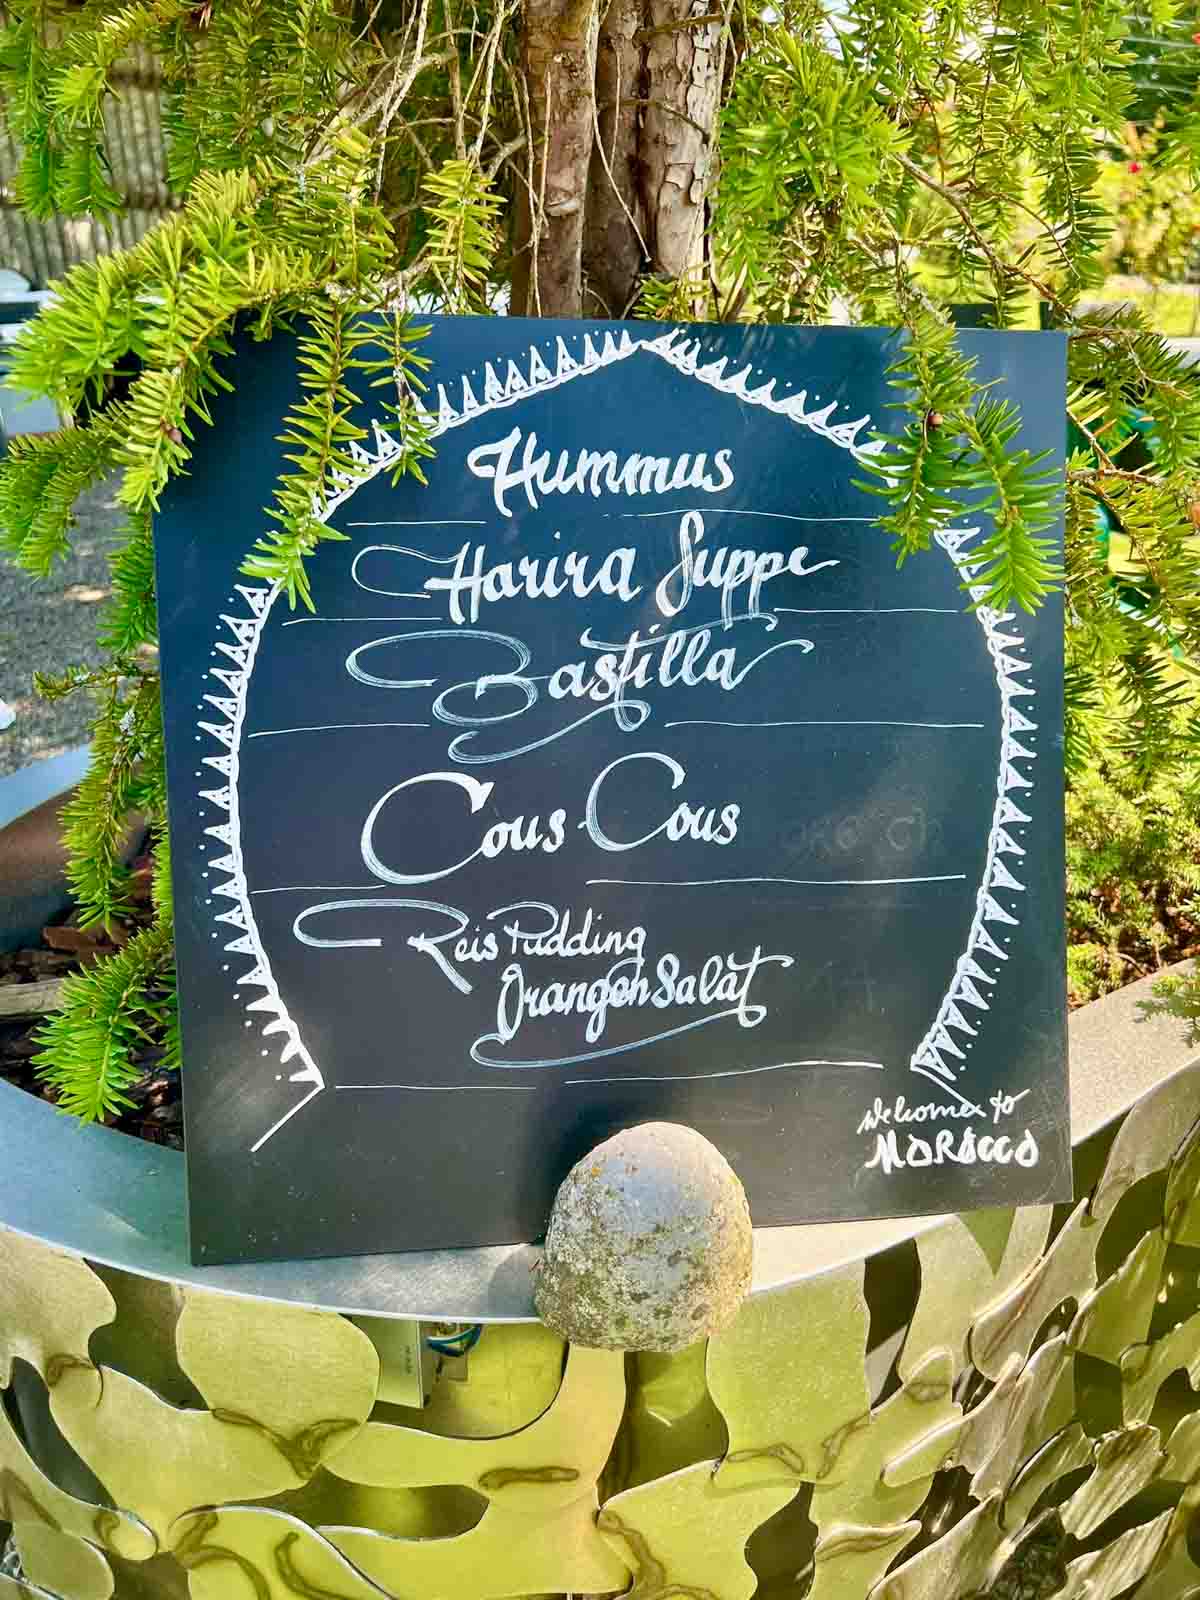 Hummus
Harira Suppe
Bastilla
Cous-Cous
Reis Pudding
Orangen Salat
Welcome to
MOROCCO